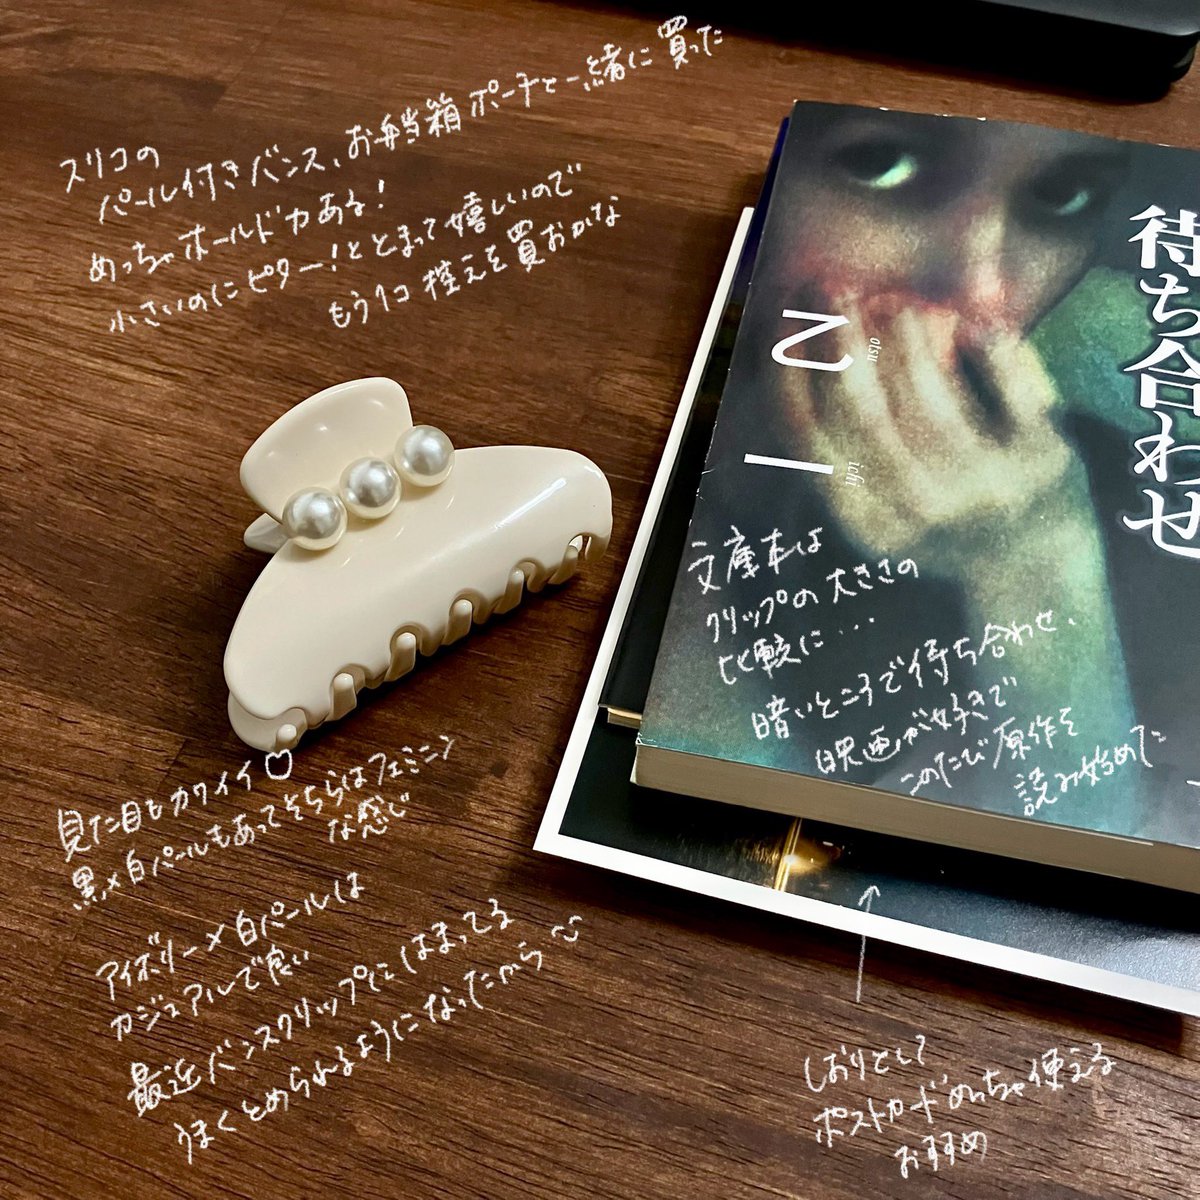 スリコの
パール付きバンス、お弁当箱ポーチと一緒に買った
めっちゃホールド力ある！
小さいのにピター！ととまって嬉しいので
もう1コ控えを買おかな
待ち合わせ
乙一
otsu
ichi
文庫本は
クリップの大きさの
比較に・・・
暗いところで待ち合わせ、
映画が好きで
このたび原作を
読み始めた
見た目もカワイイ♡
黒×白パールもあってそちらはフェミニン
な感じ
アイボリー×白パールは
カジュアルで良い
最近バンスクリップにはまってる
うまくとめられるようになったから
しおりとして
ポストカードめっちゃ使える
おすすめ